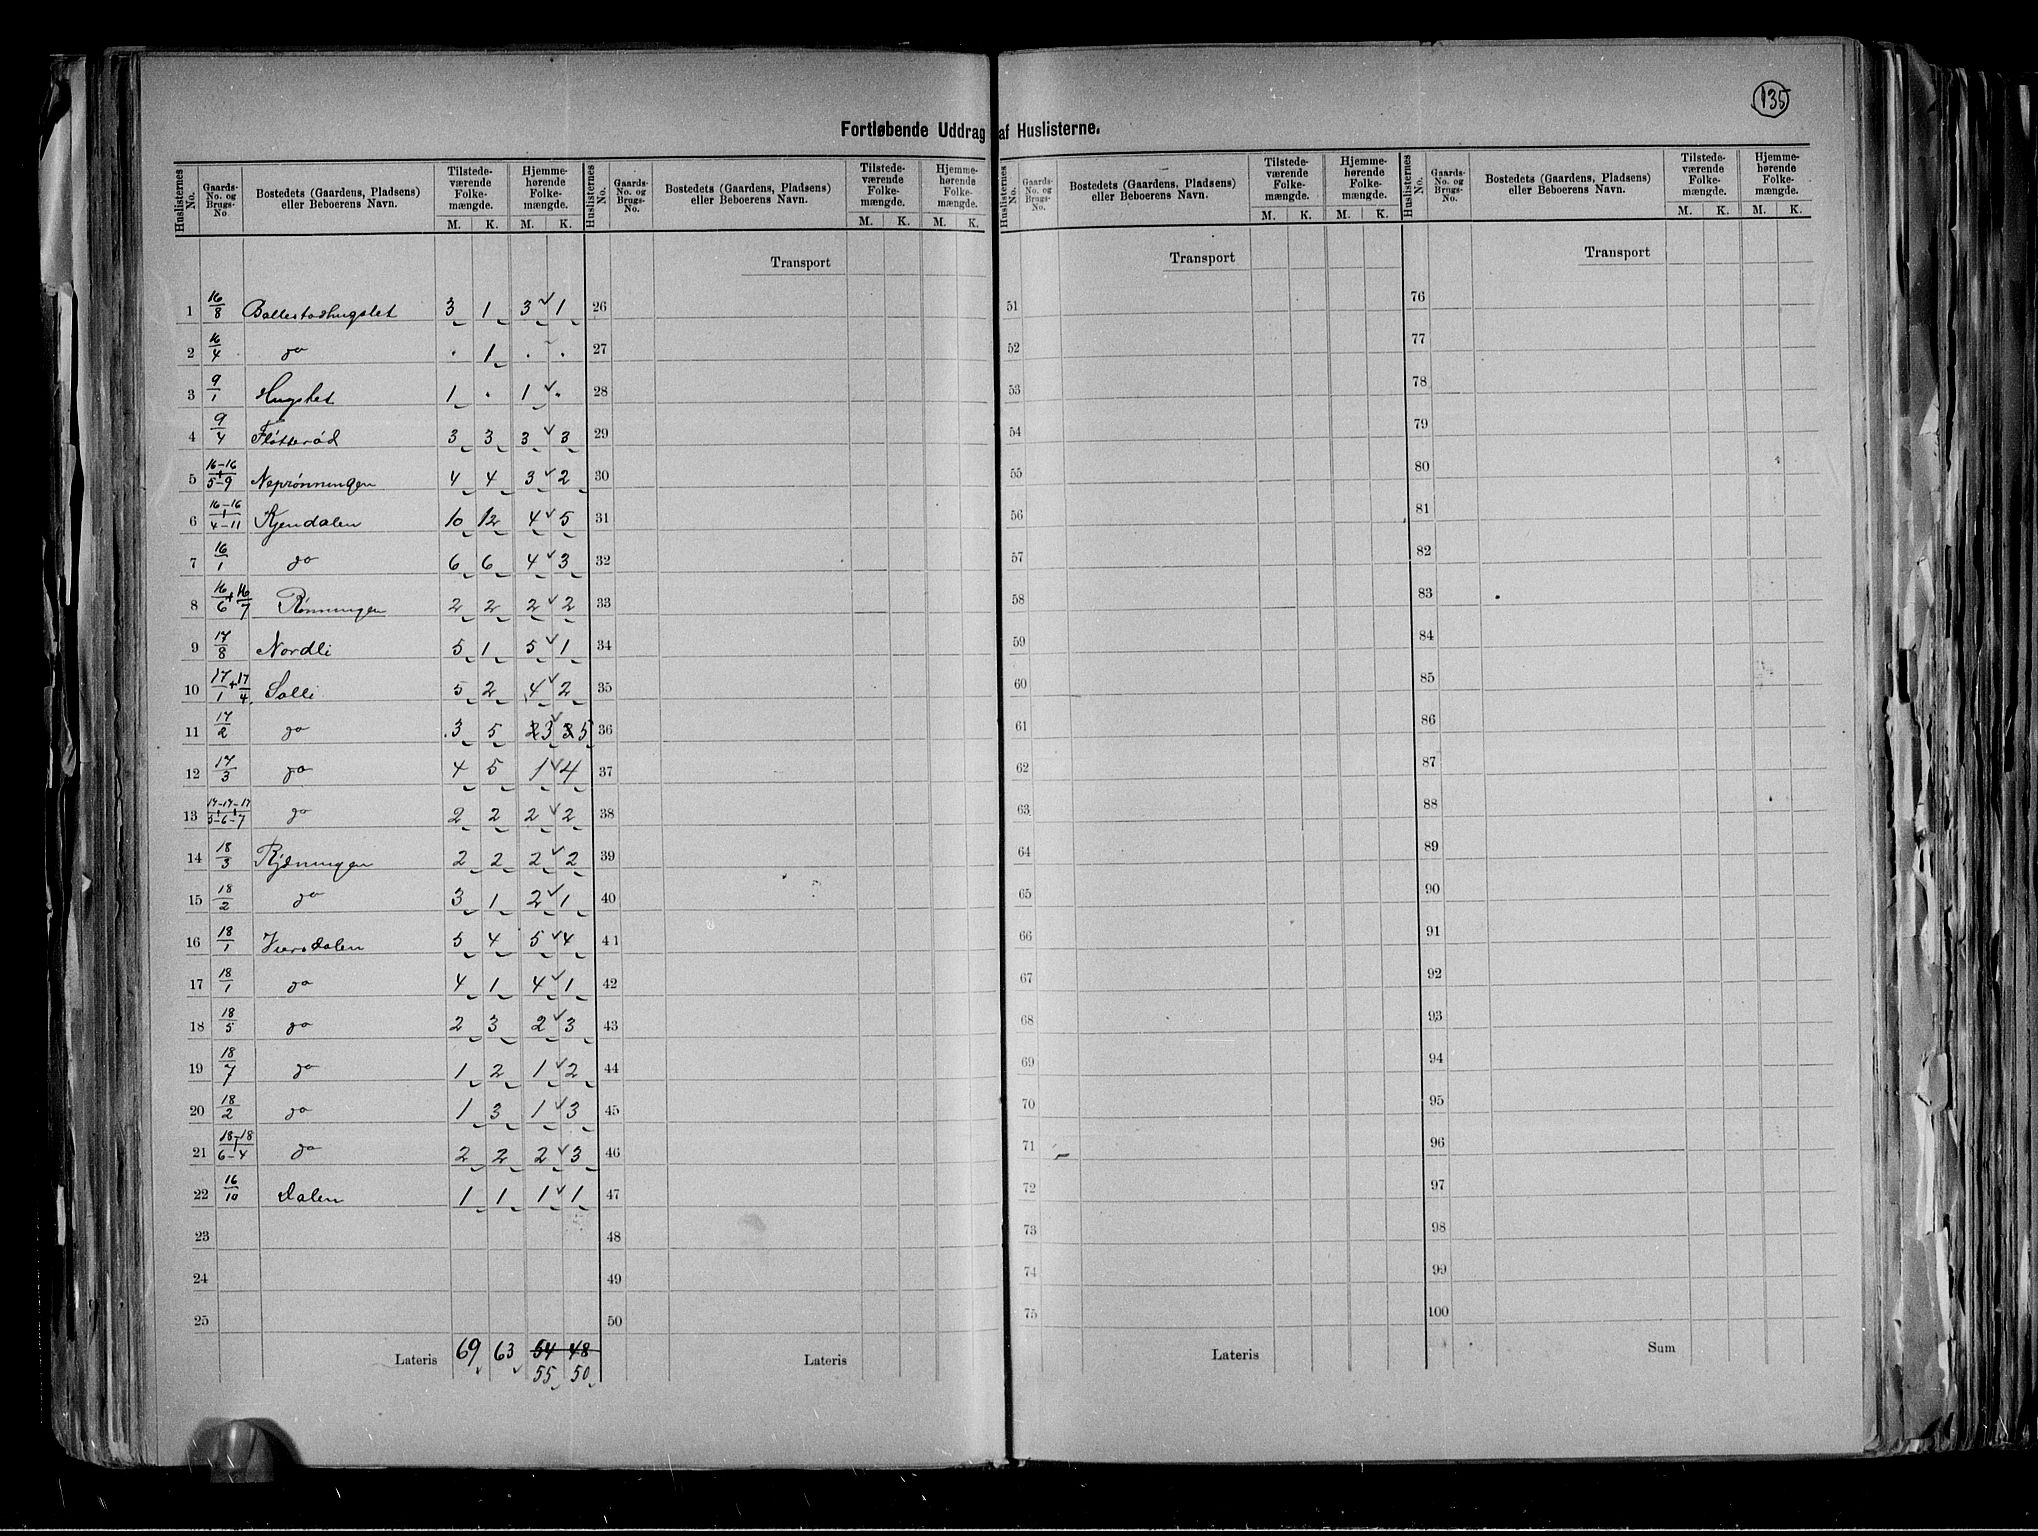 135
Fortløbende Uddrag af Huslisterne.
Huslisternes No. | Gaards-No. og Brugs-No. | Bostedets (Gaardens, Pladsens) eller Beboerens Navn. | Tilstede-værende Folke-mængde. M. K. | Hjemme-hørende Folke-mængde. M. K.
Huslisternes No. | Gaards-No. og Brugs-No. | Bostedets (Gaardens, Pladsens) eller Beboerens Navn. | Tilstede-værende Folke-mængde. M. K. | Hjemme-hørende Folke-mængde. M. K.
Huslisternes No. | Gaards-No. og Brugs-No. | Bostedets (Gaardens, Pladsens) eller Beboerens Navn. | Tilstede-værende Folke-mængde. M. K. | Hjemme-hørende Folke-mængde. M. K.
Huslisternes No. | Gaards-No. og Brugs-No. | Bostedets (Gaardens, Pladsens) eller Beboerens Navn. | Tilstede-værende Folke-mængde. M. K. | Hjemme-hørende Folke-mængde. M. K.
Transport Transport Transport
1 16/8 Ballestadhugslet 3 1 3 1 26 51 76
2 16/4 do . 1 . . 27 52 77
3 9/1 1 . 1 . 28 53 78
4 9/4 Fløtterød 3 3 3 3 29 54 79
5 16-16/5-9 + 4 4 3 2 30 55 80
6 16-16/4-11 + Kjendalen 10 12 4 5 31 56 81
7 16/1 do 6 6 4 3 32 57 82
8 16/6 + 16/7 Rønningen 2 2 2 2 33 58 83
9 17/8 Nordli 5 1 5 1 34 59 84
10 17/1 + 17/4 Solli 5 2 4 2 35 60 85
11 17/2 do 3 5 2 3 3 5 36 61 86
12 17/3 do 4 5 1 4 37 62 87
13 17-17-17/5-6-7 do 2 2 2 2 38 63 88
14 18/3 2 2 2 2 39 64 89
15 18/2 do 3 1 2 1 40 65 90
16 18/1 5 4 5 4 41 66 91
17 18/1 do 4 1 4 1 42 67 92
18 18/5 do 2 3 2 3 43 68 93
19 18/7 do 1 2 1 2 44 69 94
20 18/2 do 1 3 1 3 45 70 95
21 18-18/6-4 do 2 2 2 3 46 71 96
22 16/10 Dalen 1 1 1 1 47 72 97
23 48 73 98
24 49 74 99
25 50 75 100
Lateris 69 63 54 48 Lateris Lateris Sum
55 50